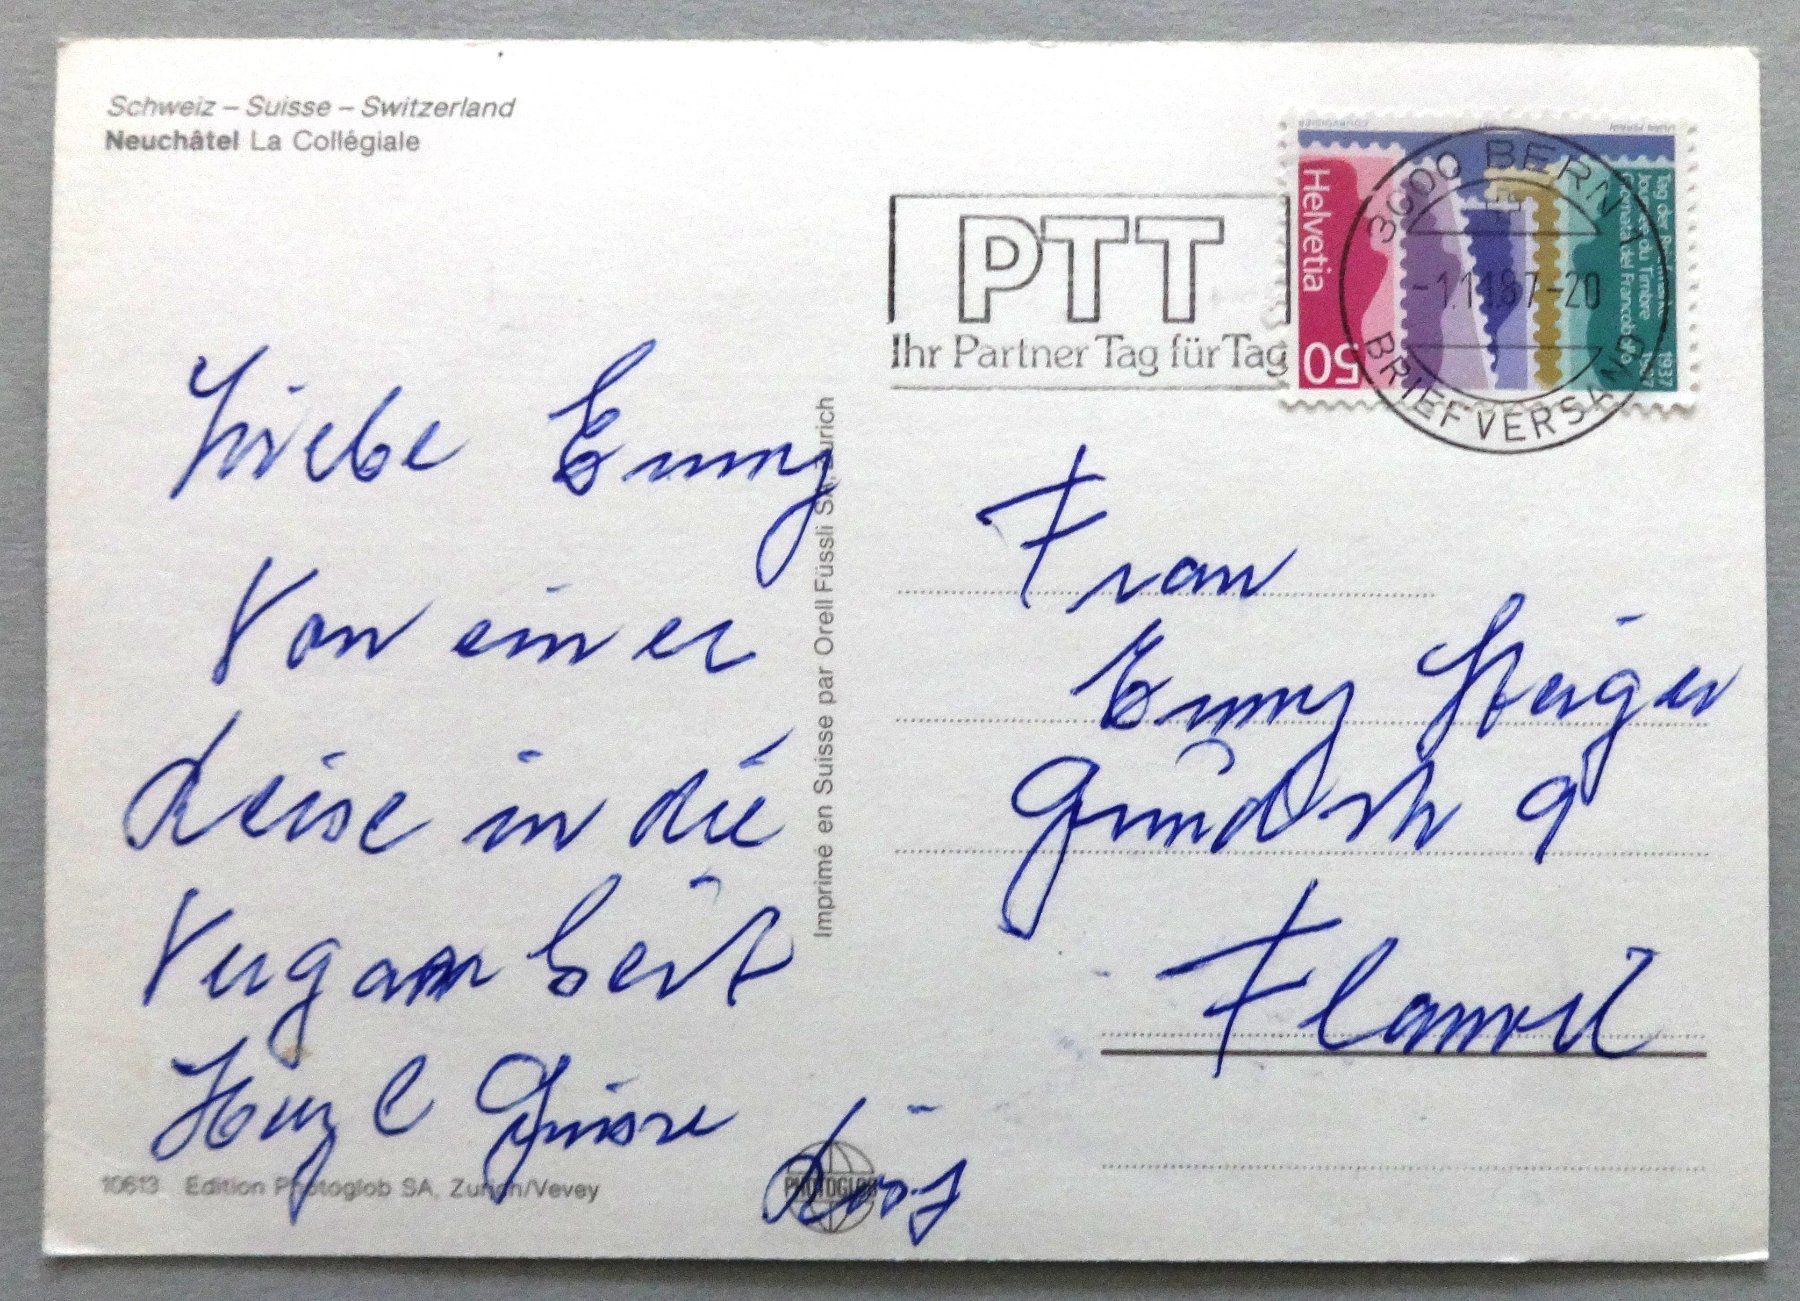 Schweiz – Suisse – Switzerland
Neuchâtel La Collégiale
Liebe Emmy
Von einer
Reise in die
Vergangenheit
Herzl Grüsse
10613 Edition Photoglob SA, Zürich/Vevey
PHOTOGLOB
Imprimé en Suisse par Orell Füssli SA, Zürich
PTT
Ihr Partner Tag für Tag
3000 BERN 1
-1.11.87-20
BRIEFVERSAND
Helvetia
50
Tag der Briefmarke 1937
Journée du Timbre 1987
Giornata del Francobollo
COURVOISIER
Frau
Emmy Steiger
Gründstr 9
Flawil